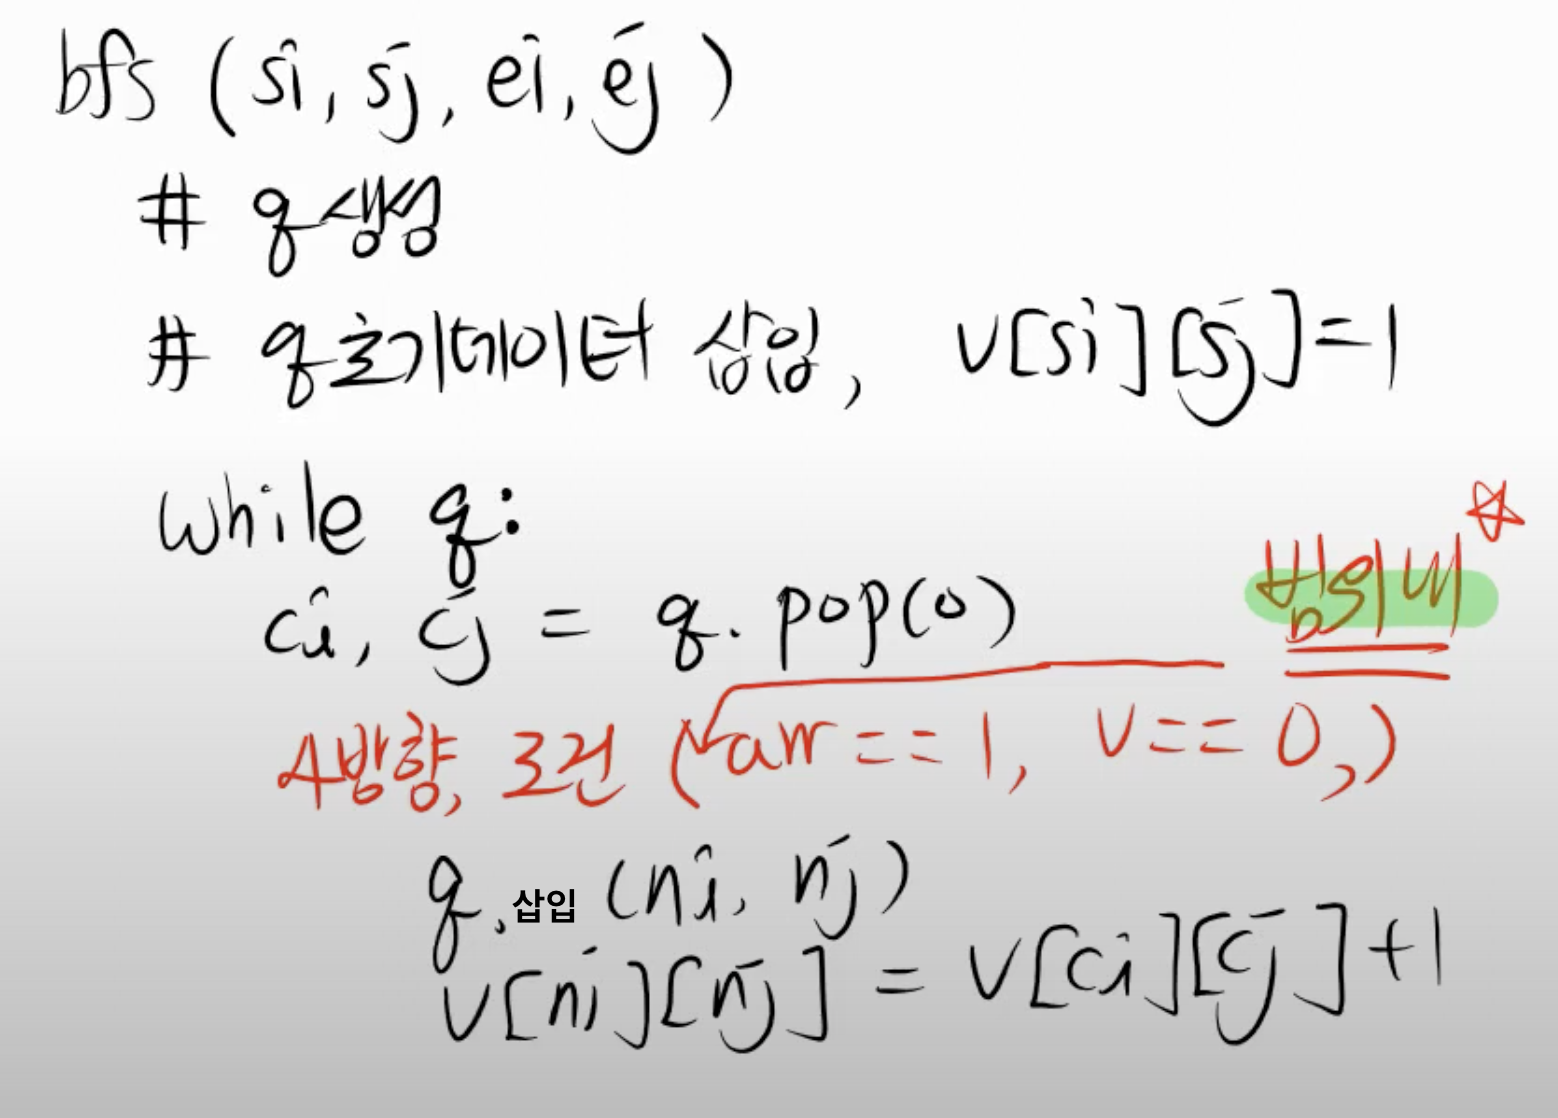 bfs (si, sj, ei, ej)
# q생성
# q초기데이터 삽입, v[si][sj]=1
while q:
ci, cj = q.pop(0)
범위내
4방향, 조건 (arr==1, v==0,)
q.삽입 (ni, nj)
v[ni][nj] = v[ci][cj]+1